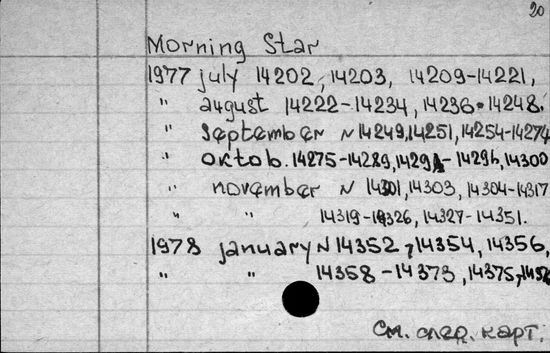 20
Morning Star
1977 july 14202, 14203, 14209-14221,
" august 14222-14234, 14236-14248.
" september N 14249, 14251, 14254-14274
" oktob. 14275-14289, 14291-14296, 14300
" november N 14301, 14303, 14304-14317
" " 14319-14326, 14327-14351.
1978 january N 14352, 14354, 14356,
" " 14358-14373, 14375,
См. след. карт.